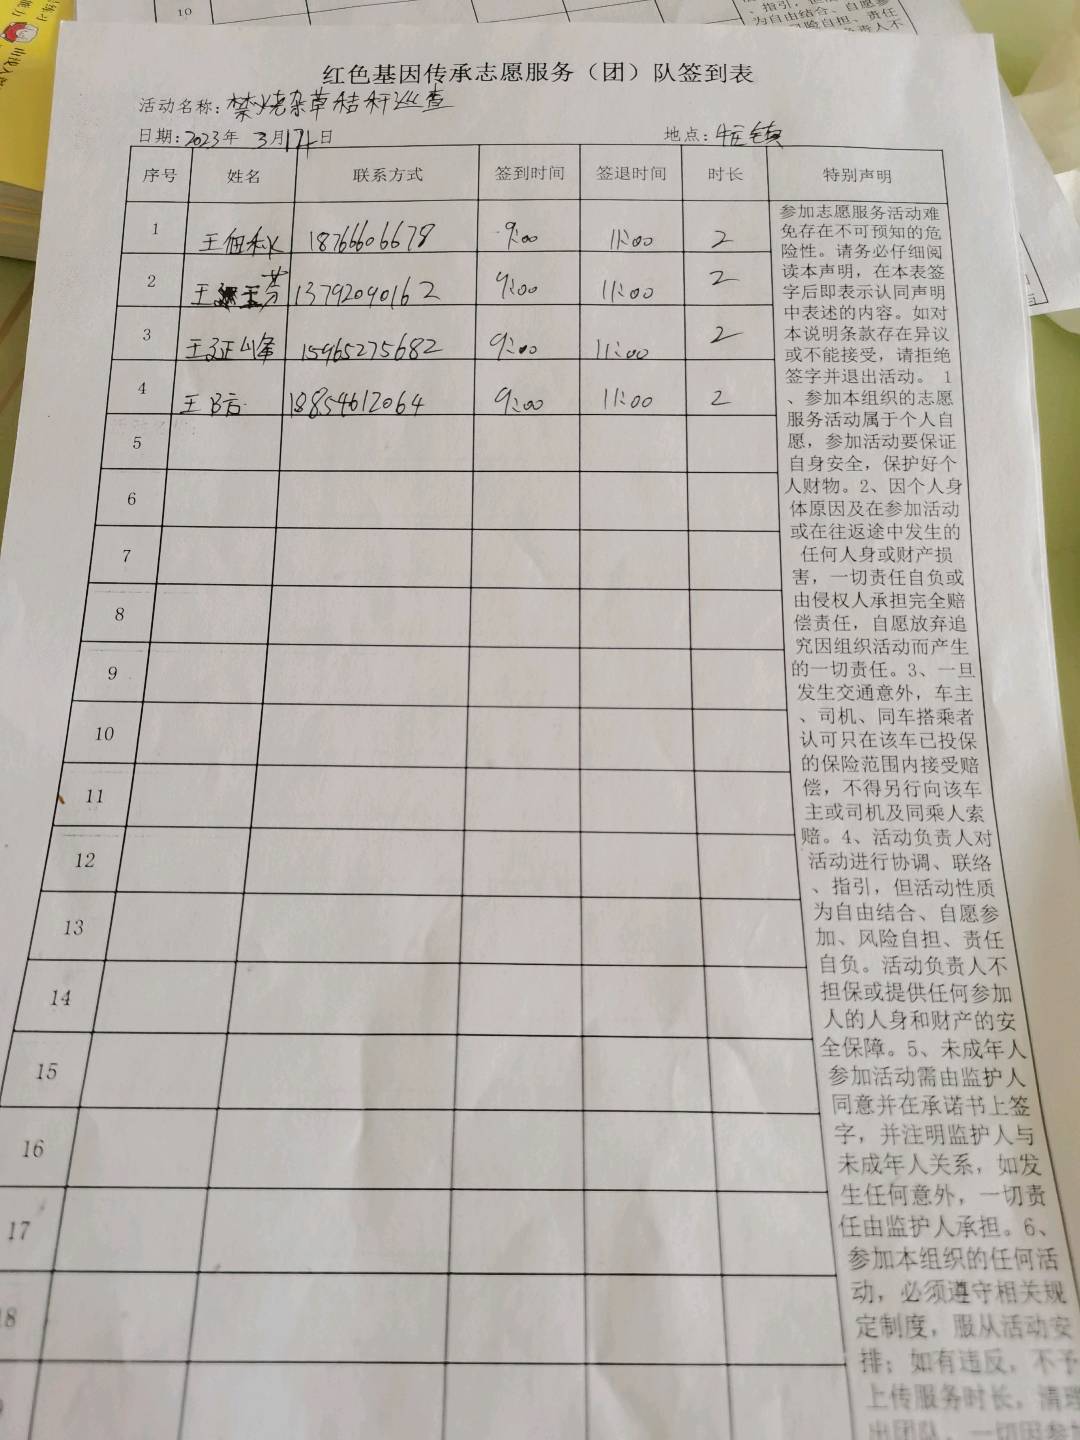 10
红色基因传承志愿服务（团）队签到表
活动名称：禁烧杂草秸秆巡查
日期：2023年 3月14日 地点：庄镇
序号 姓名 联系方式 签到时间 签退时间 时长 特别声明
1 王 18766606678 9:00 11:00 2
2 王 芳 13792040162 9:00 11:00 2
3 王 峰 15965275682 9:00 11:00 2
4 王 18854612064 9:00 11:00 2
5
6
7
8
9
10
11
12
13
14
15
16
17
18
参加志愿服务活动难
免存在不可预知的危
险性。请务必仔细阅
读本声明，在本表签
字后即表示认同声明
中表述的内容。如对
本说明条款存在异议
或不能接受，请拒绝
签字并退出活动。 1
、参加本组织的志愿
服务活动属于个人自
愿，参加活动要保证
自身安全，保护好个
人财物。2、因个人身
体原因及在参加活动
或在往返途中发生的
任何人身或财产损
害，一切责任自负或
由侵权人承担完全赔
偿责任，自愿放弃追
究因组织活动而产生
的一切责任。3、一旦
发生交通意外，车主
、司机、同车搭乘者
认可只在该车已投保
的保险范围内接受赔
偿，不得另行向该车
主或司机及同乘人索
赔。4、活动负责人对
活动进行协调、联络
、指引，但活动性质
为自由结合、自愿参
加、风险自担、责任
自负。活动负责人不
担保或提供任何参加
人的人身和财产的安
全保障。5、未成年人
参加活动需由监护人
同意并在承诺书上签
字，并注明监护人与
未成年人关系，如发
生任何意外，一切责
任由监护人承担。6、
参加本组织的任何活
动，必须遵守相关规
定制度，服从活动安
排；如有违反，不予
上传服务时长，清理
出团队，一切因参加